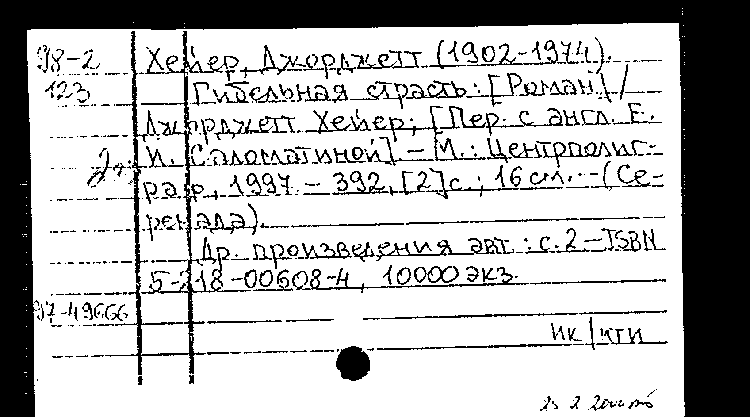 98-2 Хейер, Джорджетт (1902-1974).
123 Гибельная страсть: [Роман] /
Джорджетт Хейер; [Пер. с англ. Е.
И. Саломатиной] – М.: Центрполиг-
раф, 1997. – 392, [2] с.; 16 см. – (Се-
ренада).
Др. произведения авт.: с. 2 – ISBN
5-218-00608-4, 10000 экз.
97-49666
ИК/КГИ